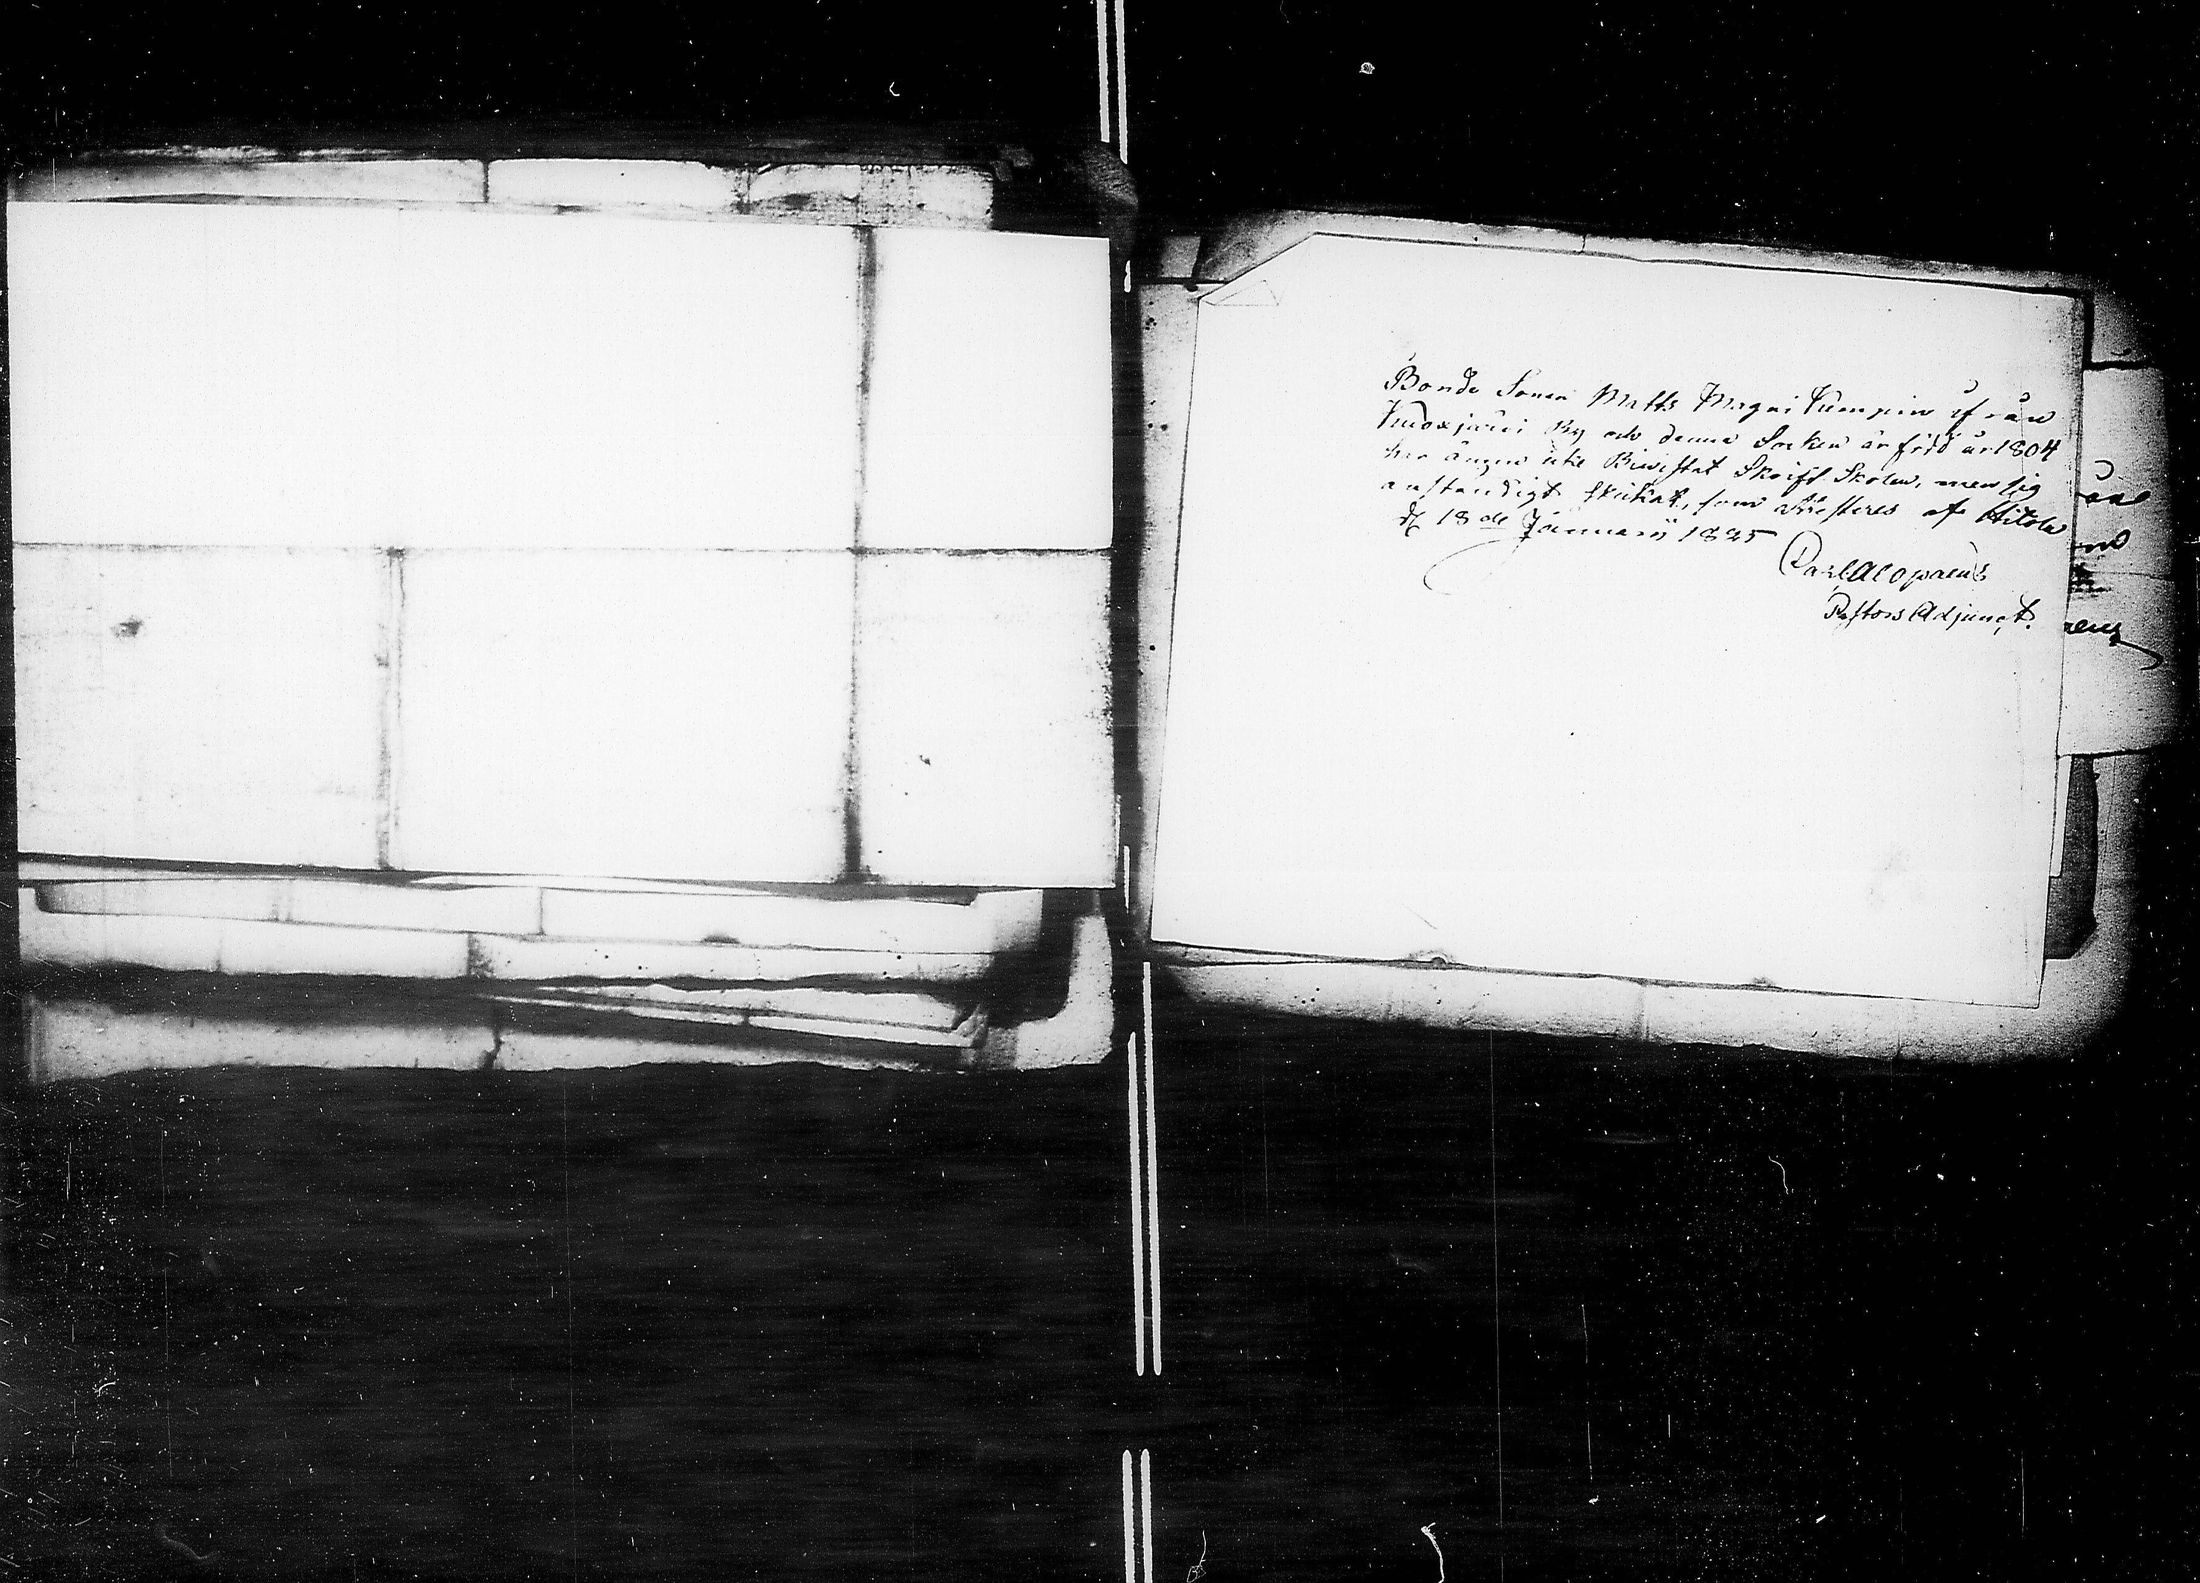 Bonde Sonen Matts Magni Kumpin ifrån
By och denna Socken är född år 1804
har ånyo uti Biwistat Skrift Skolan, men sig
anständigt skickat, som attesteras af Hitola
d 18de Januarii 1825
Carl Alopaeus
Pastors Adjunct.